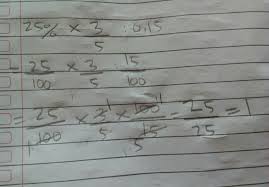 25% × 3/5 : 0,15
- 25/100 × 3/5 : 15/100
= 25/100 × 3/5 × 100/15 = 25/25 = 1